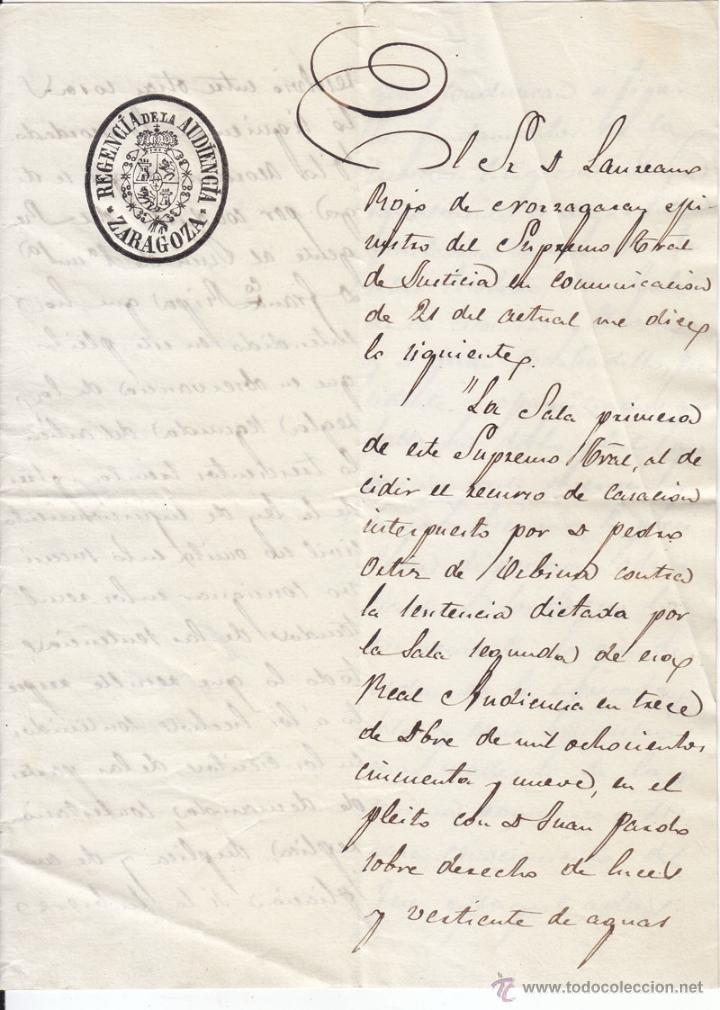 REGENCIA DE LA AUDIENCIA
ZARAGOZA
El Sr D Laureano
Rojo de Norzagaray Mi-
nistro del Supremo Tral
de Justicia en comunicacion
de 21 del actual me dice
lo siguiente
"La Sala primera
de este Supremo Tral, al de
cidir el recurso de casacion
interpuesto por D Pedro
Ortiz de Urbina contra
la sentencia dictada por
la Sala segunda de esa
Real Audiencia en trece
de Dbre de mil ochocientos
cincuenta y nueve, en el
pleito con D Juan Pardo
sobre derecho de luces
y vertiente de aguas
www.todocoleccion.net